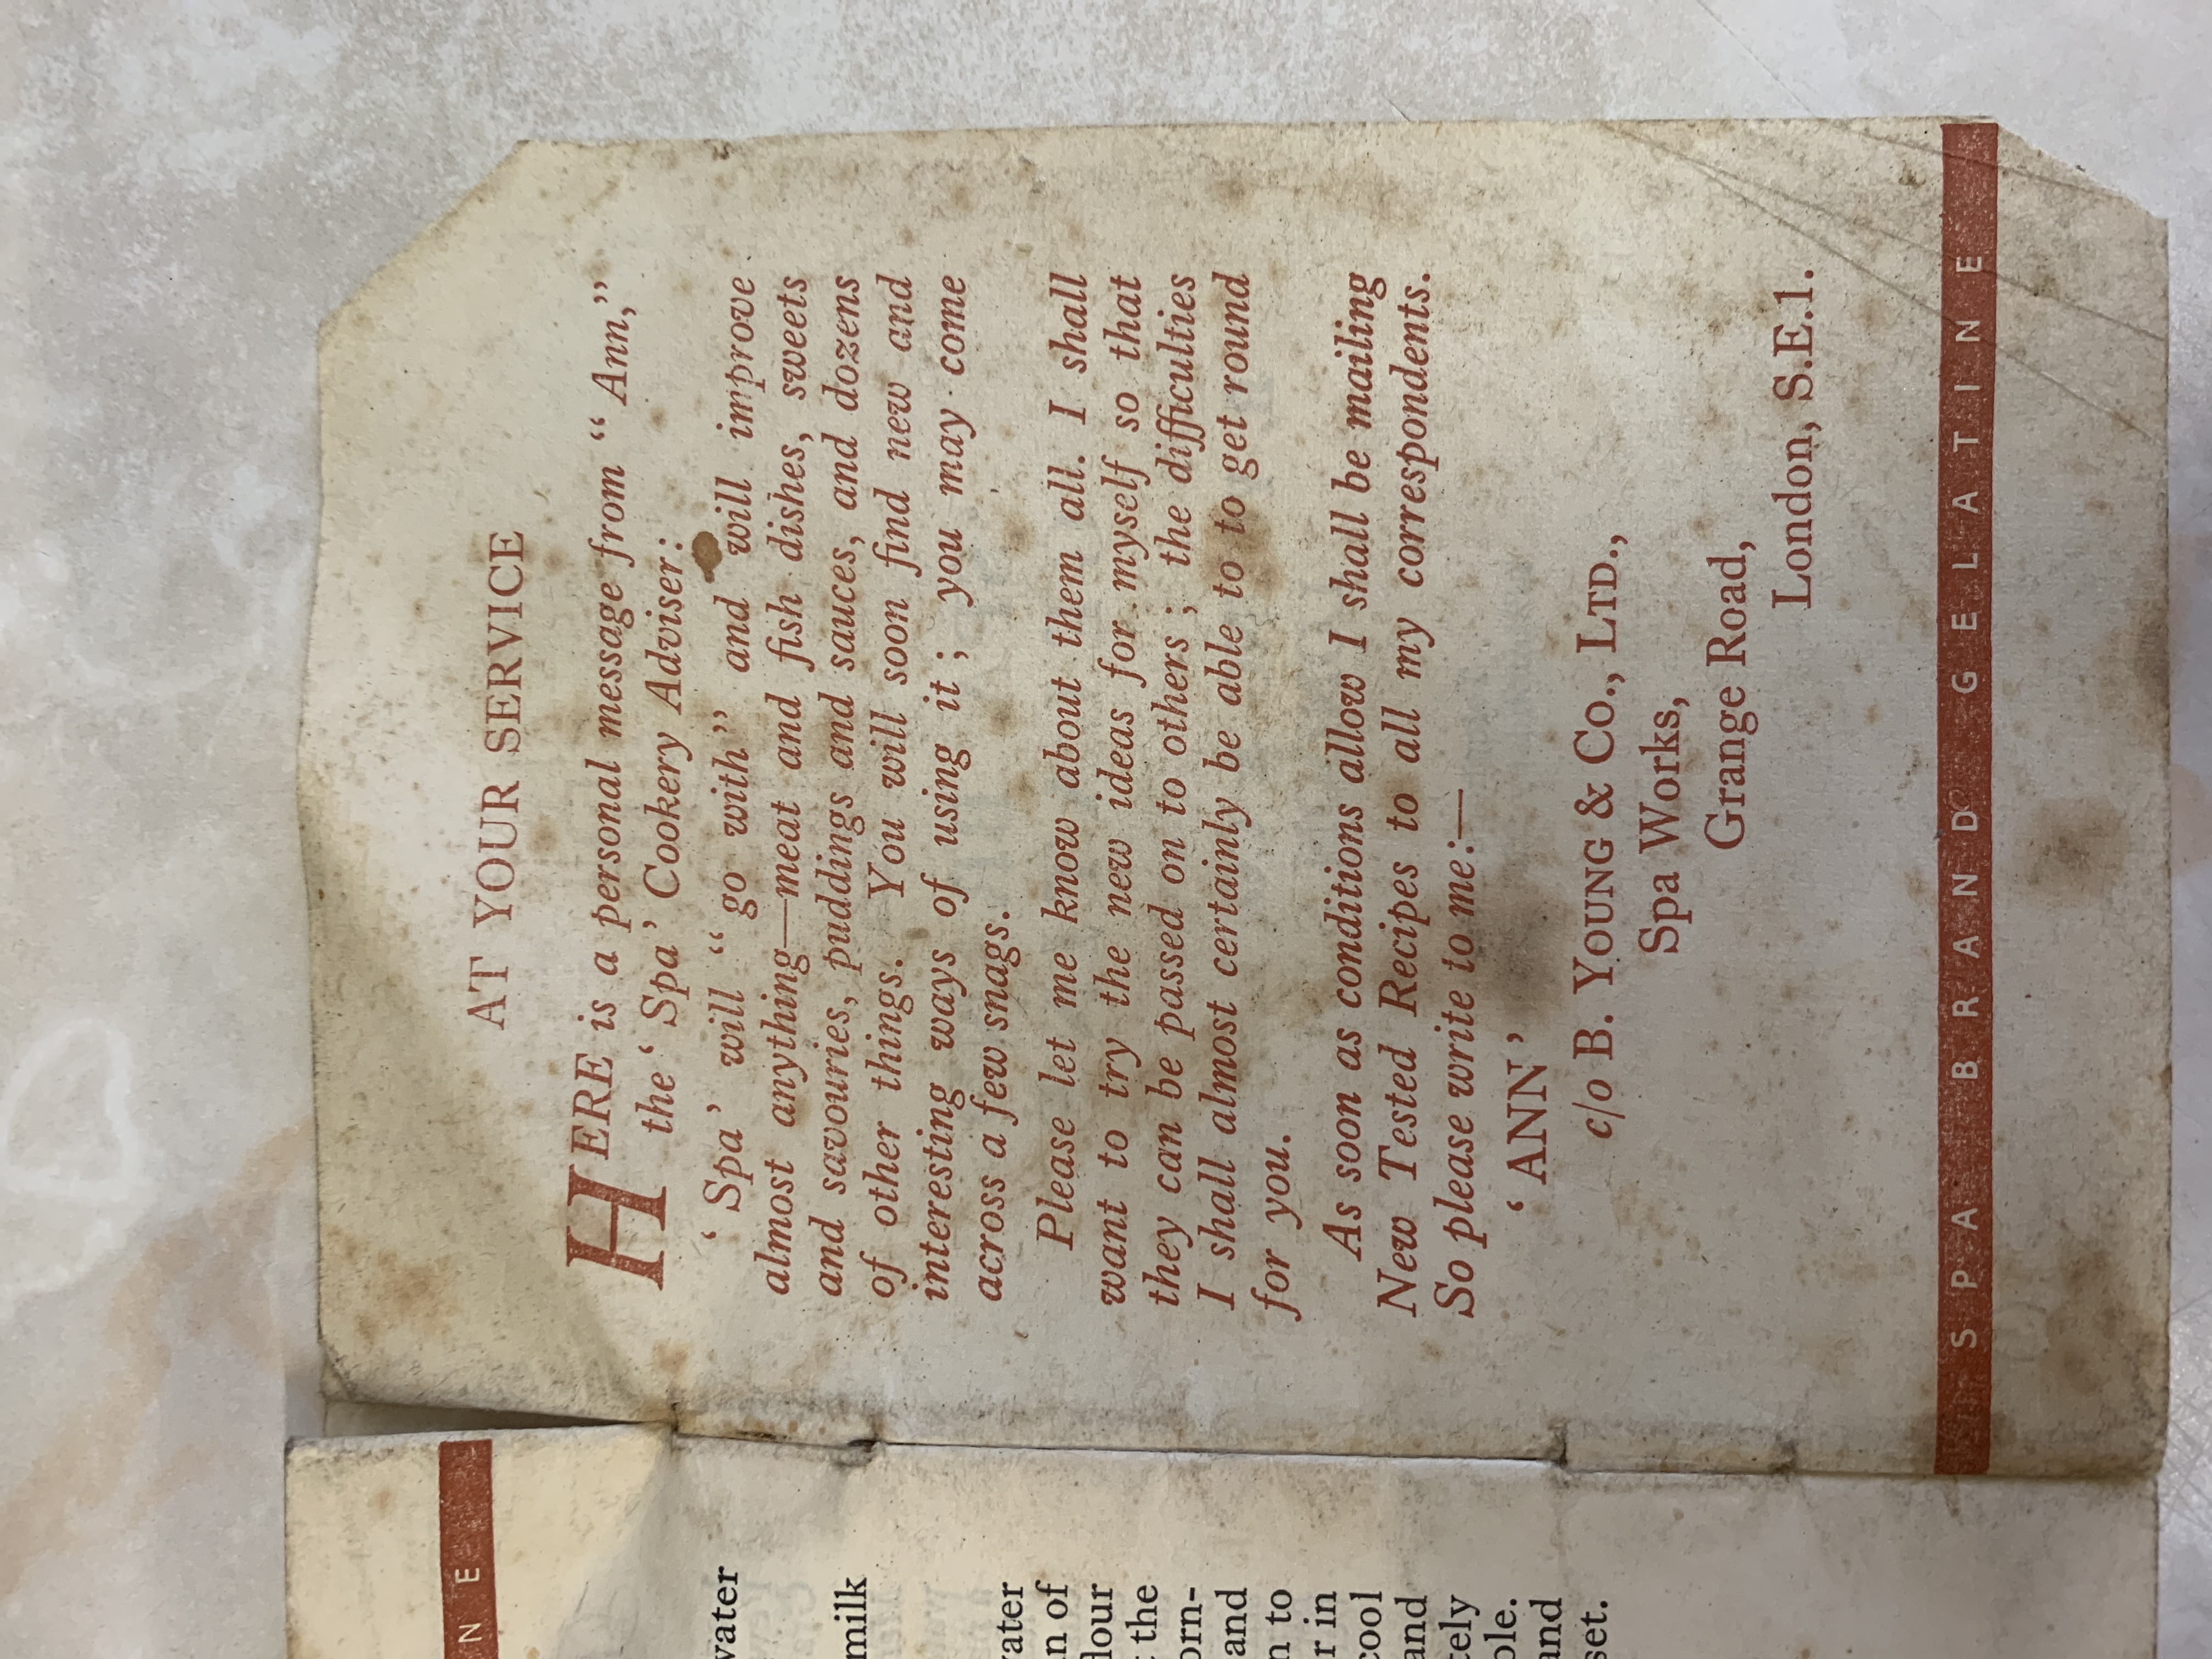 AT YOUR SERVICE
HERE is a personal message from “ Ann,”
the ‘ Spa ’ Cookery Adviser:
‘ Spa ’ will “ go with ” and will improve
almost anything—meat and fish dishes, sweets
and savouries, puddings and sauces, and dozens
of other things. You will soon find new and
interesting ways of using it ; you may come
across a few snags.
Please let me know about them all. I shall
want to try the new ideas for myself so that
they can be passed on to others ; the difficulties
I shall almost certainly be able to to get round
for you.
As soon as conditions allow I shall be mailing
New Tested Recipes to all my correspondents.
So please write to me:—
‘ ANN ’
c/o B. YOUNG & Co., LTD.,
Spa Works,
Grange Road,
London, S.E.1.
SPA BRAND GELATINE
N E
water
milk
water
n of
lour
the
orn-
and
n to
r in
cool
and
tely
ole.
and
set.